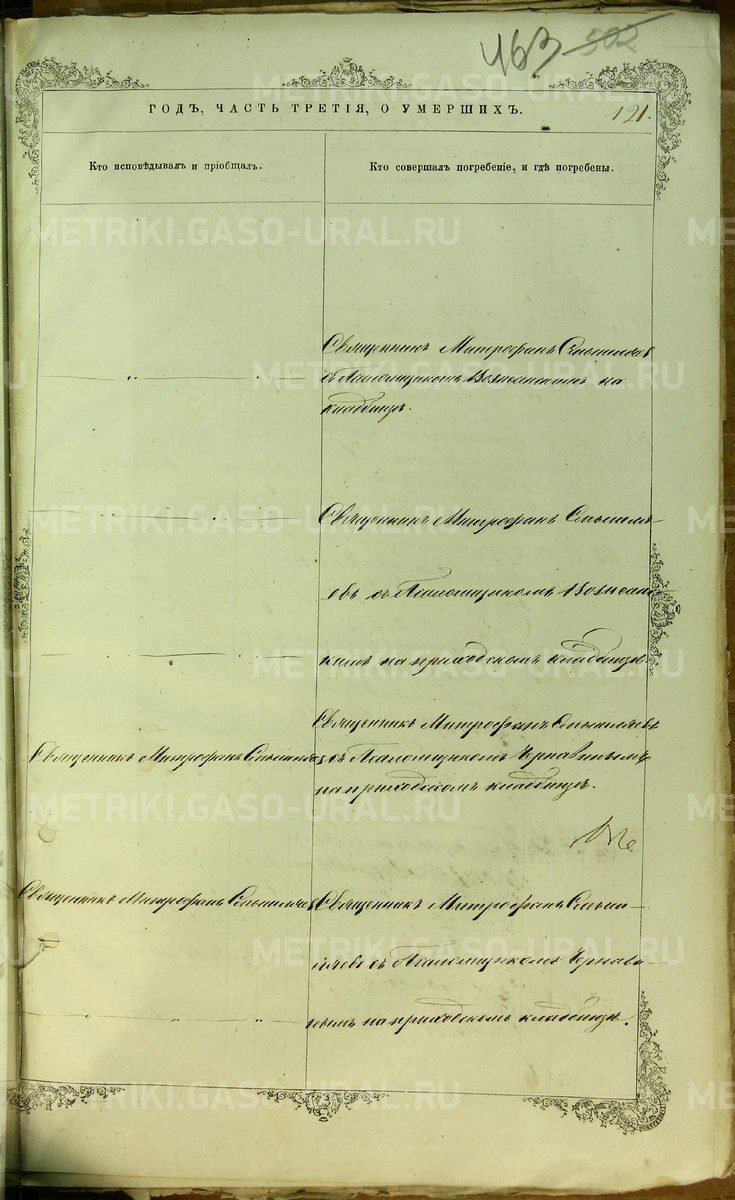 463 502
ГОДЪ, ЧАСТЬ ТРЕТІЯ, О УМЕРШИХЪ.
121.
Кто исповѣдывалъ и пріобщалъ.
Кто совершалъ погребеніе, и гдѣ погребены.
Священникъ Митрофанъ Смышляевъ
съ Псаломщикомъ Вознесенскимъ на
кладбищѣ.
Священникъ Митрофанъ Смышля-
евъ съ Псаломщикомъ Вознесенс
кимъ на приходскомъ кладбищѣ
Священникъ Митрофанъ Смышляевъ
Священникъ Митрофанъ Смышляевъ
съ Псаломщикомъ Чернавинымъ
на приходскомъ кладбищѣ.
Священникъ Митрофанъ Смышляевъ
Священникъ Митрофанъ Смыш-
ляевъ съ Псаломщикомъ Чернави-
нымъ на приходскомъ кладбищѣ.
METRIKI.GASO-URAL.RU